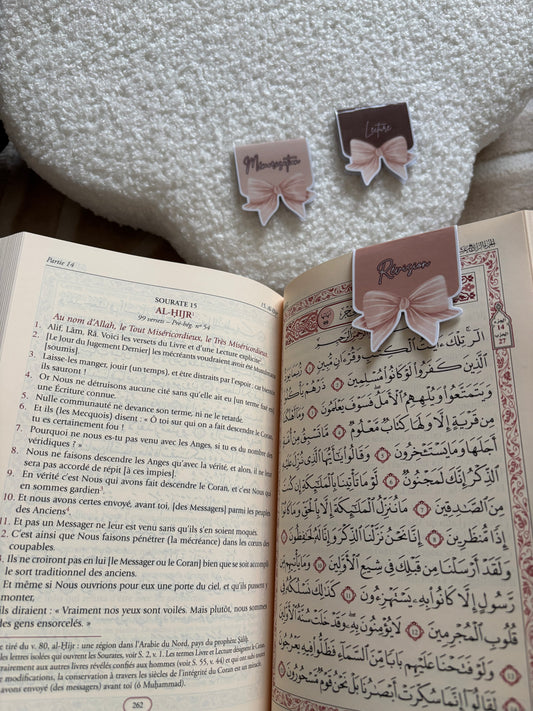 Mémorisation
Lecture
Révision
Partie 14
SOURATE 15
AL-ḤIJR
99 versets – Pré-hég. n° 54
Au nom d'Allah, le Tout Miséricordieux, le Très Miséricordieux.
1. Alif, Lâm, Râ. Voici les versets du Livre et d'une Lecture explicite.
2. [Le Jour du Jugement Dernier] les mécréants voudraient avoir été Musulmans
[soumis].
3. Laisse-les manger, jouir (un temps), et être distraits par l'espoir ; car bientôt
ils sauront !
4. Or Nous ne détruisons aucune cité sans qu'elle ait eu [un terme fixé en]
une Écriture connue.
5. Nulle communauté ne devance son terme, ni ne le retarde.
6. Et ils (les Mecquois) disent : « Ô toi sur qui on a fait descendre le Coran, tu
es certainement fou !
7. Pourquoi ne nous es-tu pas venu avec les Anges, si tu es du nombre des
véridiques ? »
8. Nous ne faisons descendre les Anges qu'avec la vérité, et alors, il ne leur
sera pas accordé de répit [à ces impies].
9. En vérité c'est Nous qui avons fait descendre le Coran, et c'est Nous qui
en sommes gardien³.
10. Et nous avons certes envoyé, avant toi, [des Messagers] parmi les peuples
des Anciens⁴.
11. Et pas un Messager ne leur est venu sans qu'ils s'en soient moqués.
2. C'est ainsi que Nous faisons pénétrer (la mécréance) dans les cœurs des
coupables.
3. Ils ne croiront pas en lui [le Messager ou le Coran] bien que se soit accompli
le sort traditionnel des anciens.
Et même si Nous ouvrions pour eux une porte du ciel, et qu'ils pussent y
monter,
ils diraient : « Vraiment nos yeux sont voilés. Mais plutôt, nous sommes
des gens ensorcelés. »
tiré du v. 80, al-Ḥijr : une région dans l'Arabie du Nord, pays du prophète Ṣâliḥ.
lettres isolées qui ouvrent les Sourates, voir S. 2, v. 1. Les termes Livre et Lecture désignent le Coran.
rairement aux autres livres révélés confiés aux hommes (voir S. 5, v. 44) et qui ont subi toutes
modifications, la conservation à travers les siècles de l'intégrité du Coran est un miracle.
avons envoyé (des messagers) avant toi (ô Muḥammad).
262
الٓر تِلْكَ ءَايَٰتُ ٱلْكِتَٰبِ وَقُرْءَانٍ مُّبِينٍ ١ رُّبَمَا يَوَدُّ
ٱلَّذِينَ كَفَرُوا۟ لَوْ كَانُوا۟ مُسْلِمِينَ ٢ ذَرْهُمْ يَأْكُلُوا۟
وَيَتَمَتَّعُوا۟ وَيُلْهِهِمُ ٱلْأَمَلُ فَسَوْفَ يَعْلَمُونَ ٣ وَمَآ أَهْلَكْنَا
مِن قَرْيَةٍ إِلَّا وَلَهَا كِتَابٌ مَّعْلُومٌ ٤ مَّا تَسْبِقُ مِنْ أُمَّةٍ
أَجَلَهَا وَمَا يَسْتَـْٔخِرُونَ ٥ وَقَالُوا۟ يَٰٓأَيُّهَا ٱلَّذِى نُزِّلَ عَلَيْهِ
ٱلذِّكْرُ إِنَّكَ لَمَجْنُونٌ ٦ لَّوْ مَا تَأْتِينَا بِٱلْمَلَٰٓئِكَةِ إِن كُنتَ
مِنَ ٱلصَّٰدِقِينَ ٧ مَا نُنَزِّلُ ٱلْمَلَٰٓئِكَةَ إِلَّا بِٱلْحَقِّ وَمَا كَانُوٓا۟
إِذًا مُّنظَرِينَ ٨ إِنَّا نَحْنُ نَزَّلْنَا ٱلذِّكْرَ وَإِنَّا لَهُۥ لَحَٰفِظُونَ ٩
وَلَقَدْ أَرْسَلْنَا مِن قَبْلِكَ فِى شِيَعِ ٱلْأَوَّلِينَ ١٠ وَمَا يَأْتِيهِم مِّن
رَّسُولٍ إِلَّا كَانُوا۟ بِهِۦ يَسْتَهْزِءُونَ ١١ كَذَٰلِكَ نَسْلُكُهُۥ فِى
قُلُوبِ ٱلْمُجْرِمِينَ ١٢ لَا يُؤْمِنُونَ بِهِۦ وَقَدْ خَلَتْ سُنَّةُ ٱلْأَوَّلِينَ
١٣ وَلَوْ فَتَحْنَا عَلَيْهِم بَابًا مِّنَ ٱلسَّمَآءِ فَظَلُّوا۟ فِيهِ يَعْرُجُونَ
١٤ لَقَالُوٓا۟ إِنَّمَا سُكِّرَتْ أَبْصَٰرُنَا بَلْ نَحْنُ قَوْمٌ مَّسْحُورُونَ
14
27